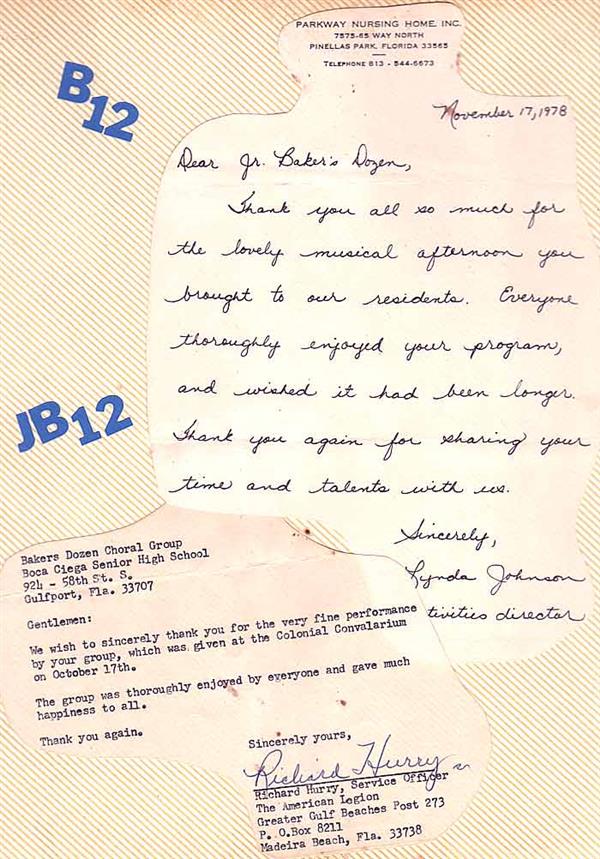 PARKWAY NURSING HOME, INC.
7575-65 WAY NORTH
PINELLAS PARK, FLORIDA 33565
TELEPHONE 813 - 544-6673
November 17, 1978
B12
Dear Jr. Baker's Dozen,
Thank you all so much for
the lovely musical afternoon you
brought to our residents. Everyone
thoroughly enjoyed your program,
and wished it had been longer.
Thank you again for sharing your
time and talents with us.
Sincerely,
Lynda Johnson
tivities director
JB12
Bakers Dozen Choral Group
Boca Ciega Senior High School
924 - 58th St. S.
Gulfport, Fla. 33707
Gentlemen:
We wish to sincerely thank you for the very fine performance
by your group, which was given at the Colonial Convalarium
on October 17th.
The group was thoroughly enjoyed by everyone and gave much
happiness to all.
Thank you again.
Sincerely yours,
Richard Hurry
Richard Hurry, Service Officer
The American Legion
Greater Gulf Beaches Post 273
P. O.Box 8211
Madeira Beach, Fla. 33738